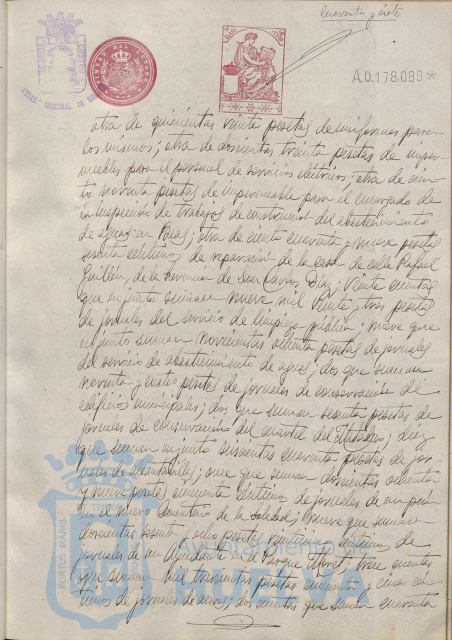 Cuarenta y siete
TIMBRE DEL ESTADO
A.0.178.089*
otra de quinientas veinte pesetas de uniformes para
los mismos; otra de doscientas treinta pesetas de imper-
meables para el personal de servicios eléctricos; otra de cien-
to noventa pesetas de impermeable para el encargado de
la inspección de trabajos de construcción del abastecimiento
de aguas; otra de ciento cuarenta y nueve pesetas
sesenta céntimos de reparación de la casa de calle Rafael
Guillén, de la herencia de Don Carlos Díaz; veinte cuentas
que en junto suman nueve mil veinte y tres pesetas
de jornales del servicio de limpieza pública; nueve que
en junto suman novecientas ochenta pesetas de jornales
del servicio de abastecimiento de aguas; dos que suman
noventa y cuatro pesetas de jornales de conservación de
edificios municipales; dos que suman sesenta pesetas de
jornales de conservación del cuartel del Matadero; diez
que suman en junto seiscientas cuarenta pesetas de jor-
nales de alcantarillas; once que suman doscientas ochenta
y nueve pesetas cincuenta céntimos de jornales de un peón
en el nuevo cementerio de la Soledad; nueve que suman
doscientas sesenta y ocho pesetas céntimos de
jornales de un Ayudante en el Parque; trece cuentas
que suman mil trescientas pesetas cincuenta y cinco cén-
timos de jornales de aceras; dos cuentas que suman cuarenta
PORTUS MARIS
Ayuntamiento de
HUELVA